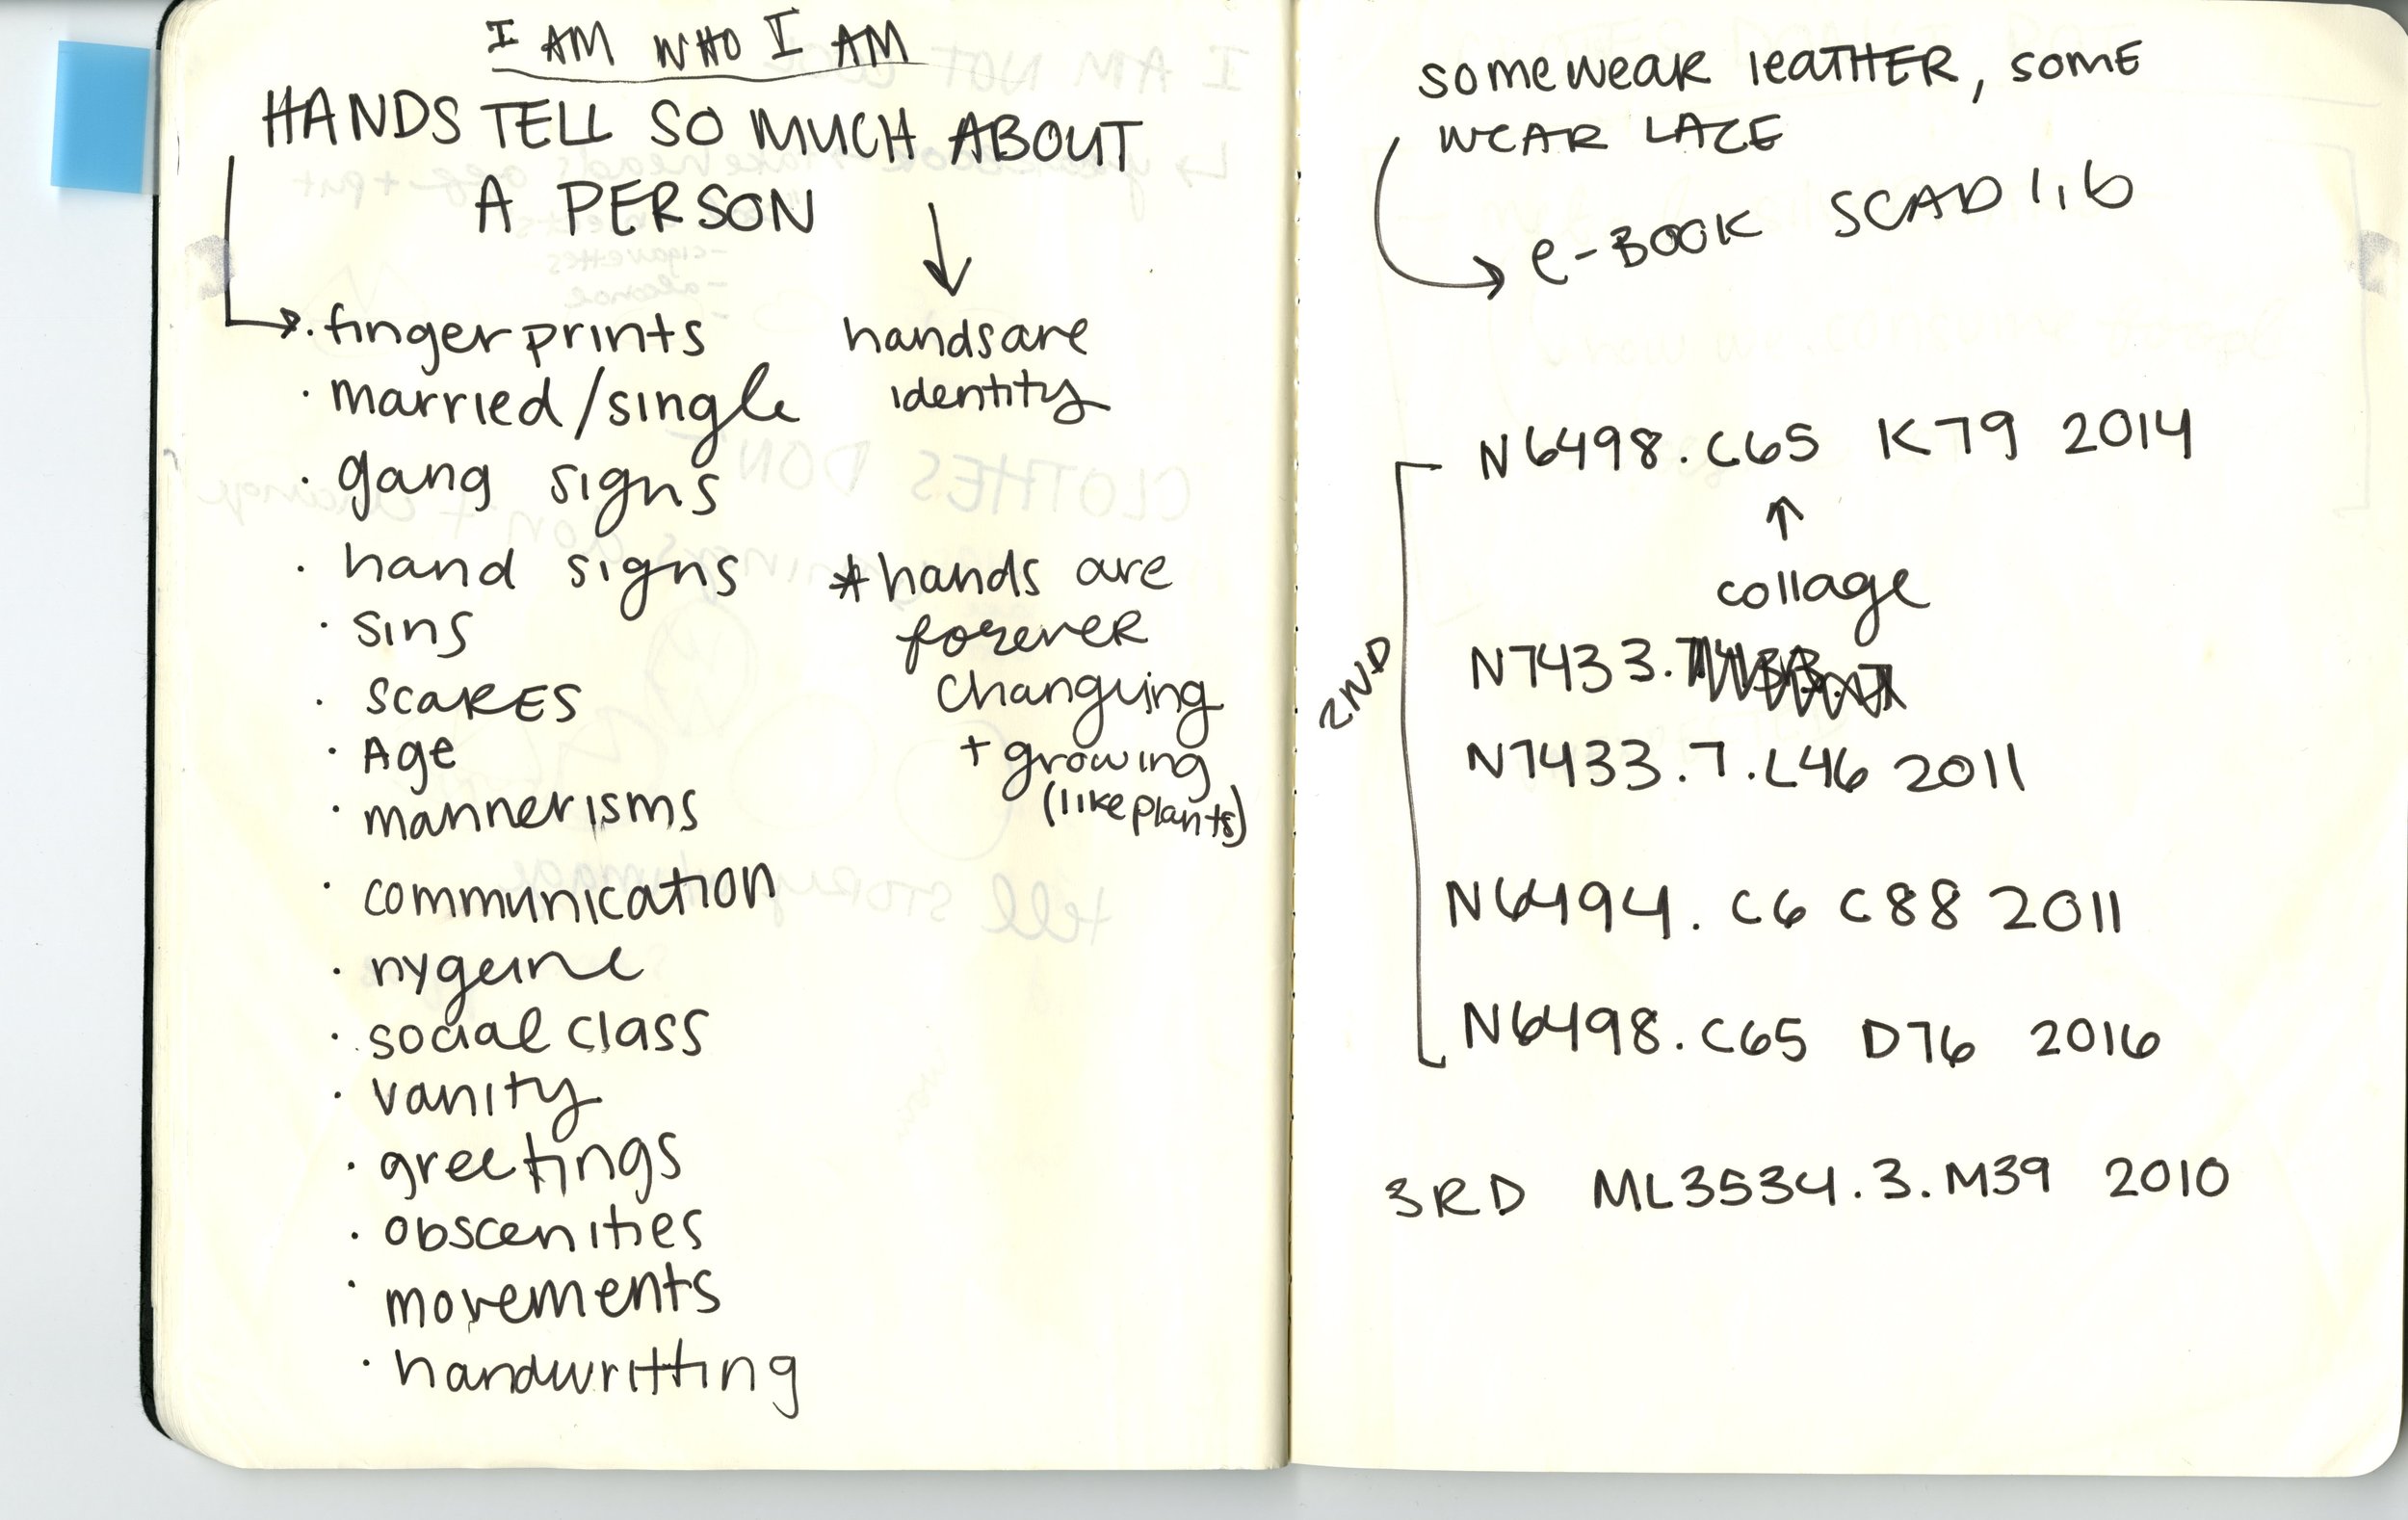 I AM WHO I AM
HANDS TELL SO MUCH ABOUT
A PERSON
· fingerprints
· married/single
· gang signs
· hand signs
· sins
· SCARES
· Age
· mannerisms
· communication
· hygeine
· social class
· vanity
· greetings
· obscenities
· movements
· handwritting
hands are
identity
* hands are
forever
changuing
+ growing
(like plants)
some wear leATHER, some
WEAR LACE
e-BOOK SCAD lib
2ND
N6498.C65 K79 2014
collage
N7433.
N7433.7.L46 2011
N6494.C6 C88 2011
N6498.C65 D76 2016
3RD ML3534.3.M39 2010